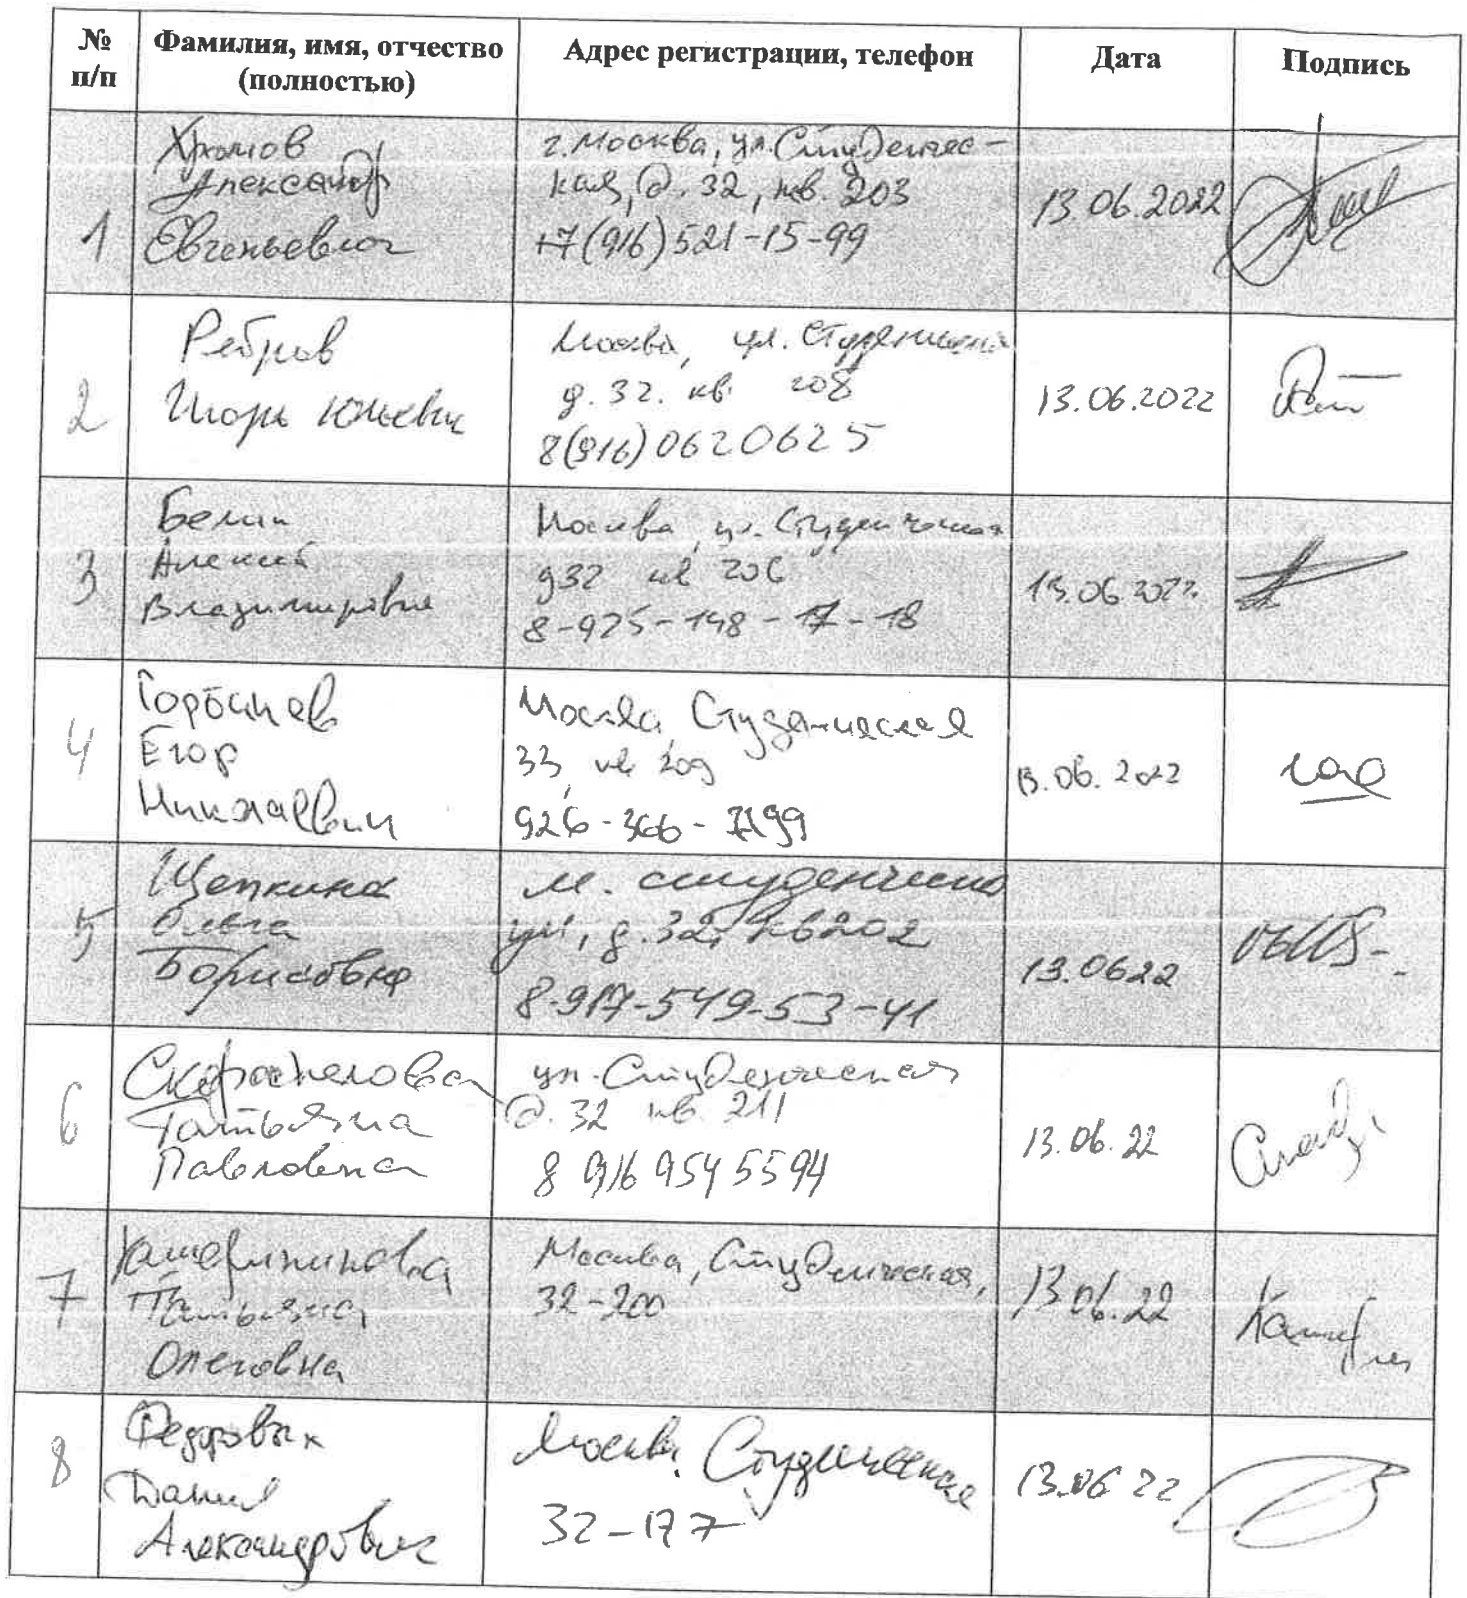 № п/п
Фамилия, имя, отчество (полностью)
Адрес регистрации, телефон
Дата
Подпись
1
Хромов
Александр
Евгеньевич
г. Москва, ул. Студенчес-
кая, д. 32, кв. 203
+7(916)521-15-99
13.06.2022
2
Ребров
Игорь Юльевич
Москва, ул. Студенческая
д. 32. кв. 208
8(916)0620625
13.06.2022
3
Белин
Алексей
Владимирович
Москва, ул. Студенческая
д32 кв 206
8-925-148-17-18
13.06.2022
4
Егор
Николаевич
Москва, Студенческая
33, кв 209
926-366-
13.06.2022
5
Щепкина
Ольга
Борисовна
м. студенческая
ул, д. 32, кв202
8-917-549-53-41
13.0622
6
Татьяна
Павловна
ул. Студенческая
д. 32 кв. 211
8 916 954 5594
13.06.22
7
Татьяна
Олеговна
Москва, Студенческая,
32-200
13.06.22
8
Федровых
Данил
Александрович
Москва, Студенческая
32-177
13.06 22